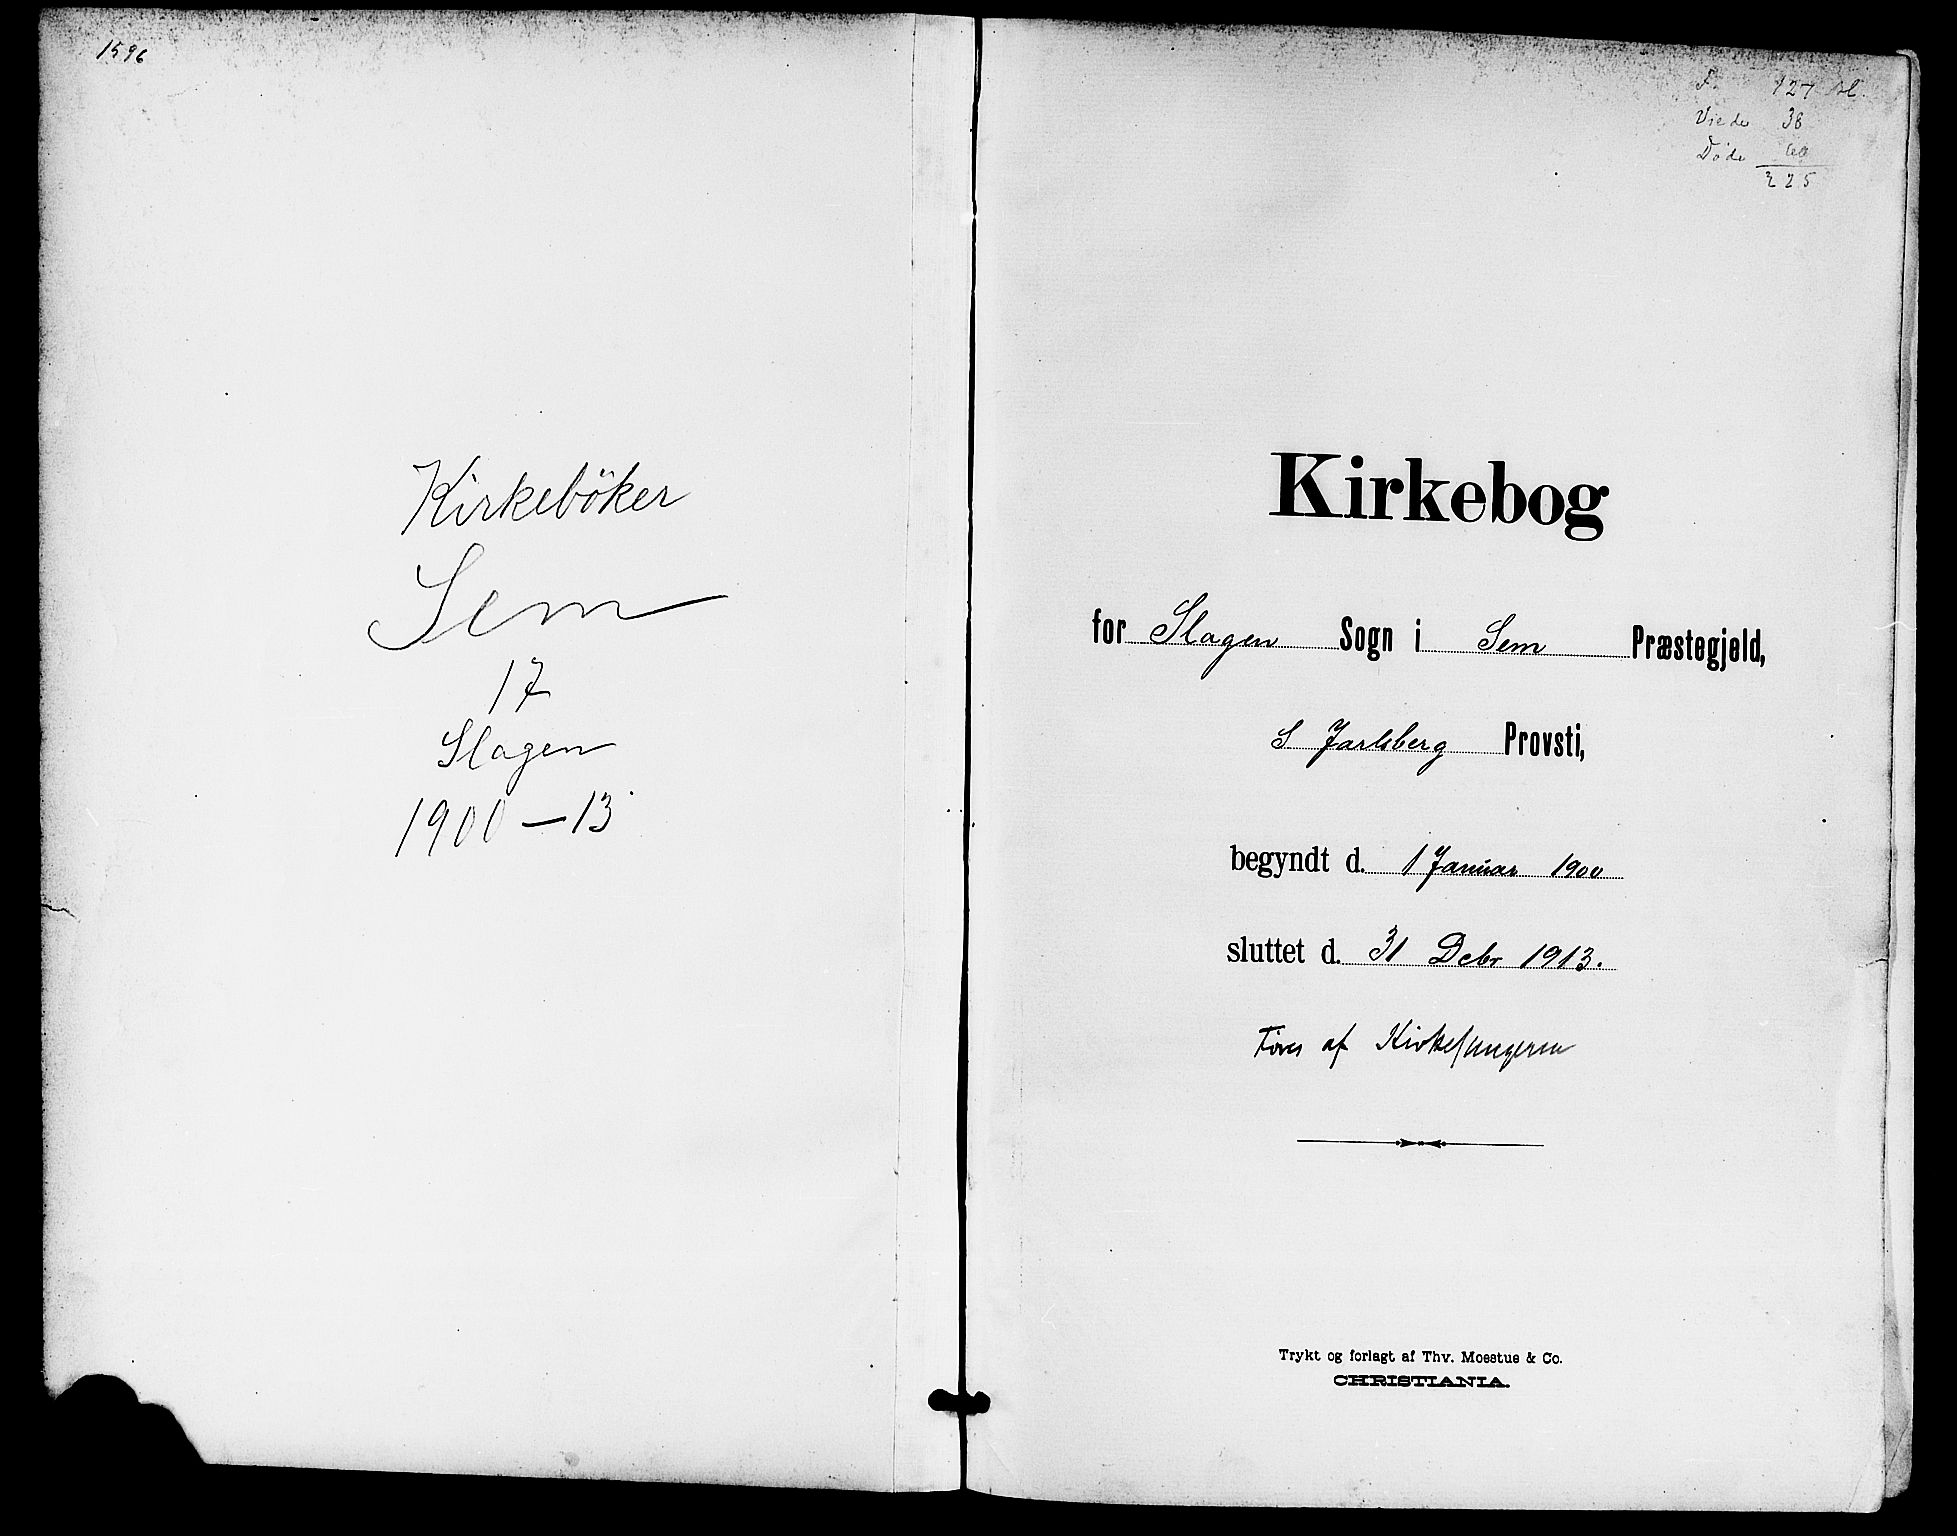 1596
Kirkeböker
Sem
17
Slagen
1900-13
F. 127 bl.
Viede 38
Døde 60
225
Kirkebog
for Slagen Sogn i Sem Præstegjeld,
S Jarlsberg Provsti,
begyndt d. 1 Januar 1900
sluttet d. 31 Debr 1913.
Føres af Kirkesangeren
Trykt og forlagt af Thv. Moestue & Co.
CHRISTIANIA.